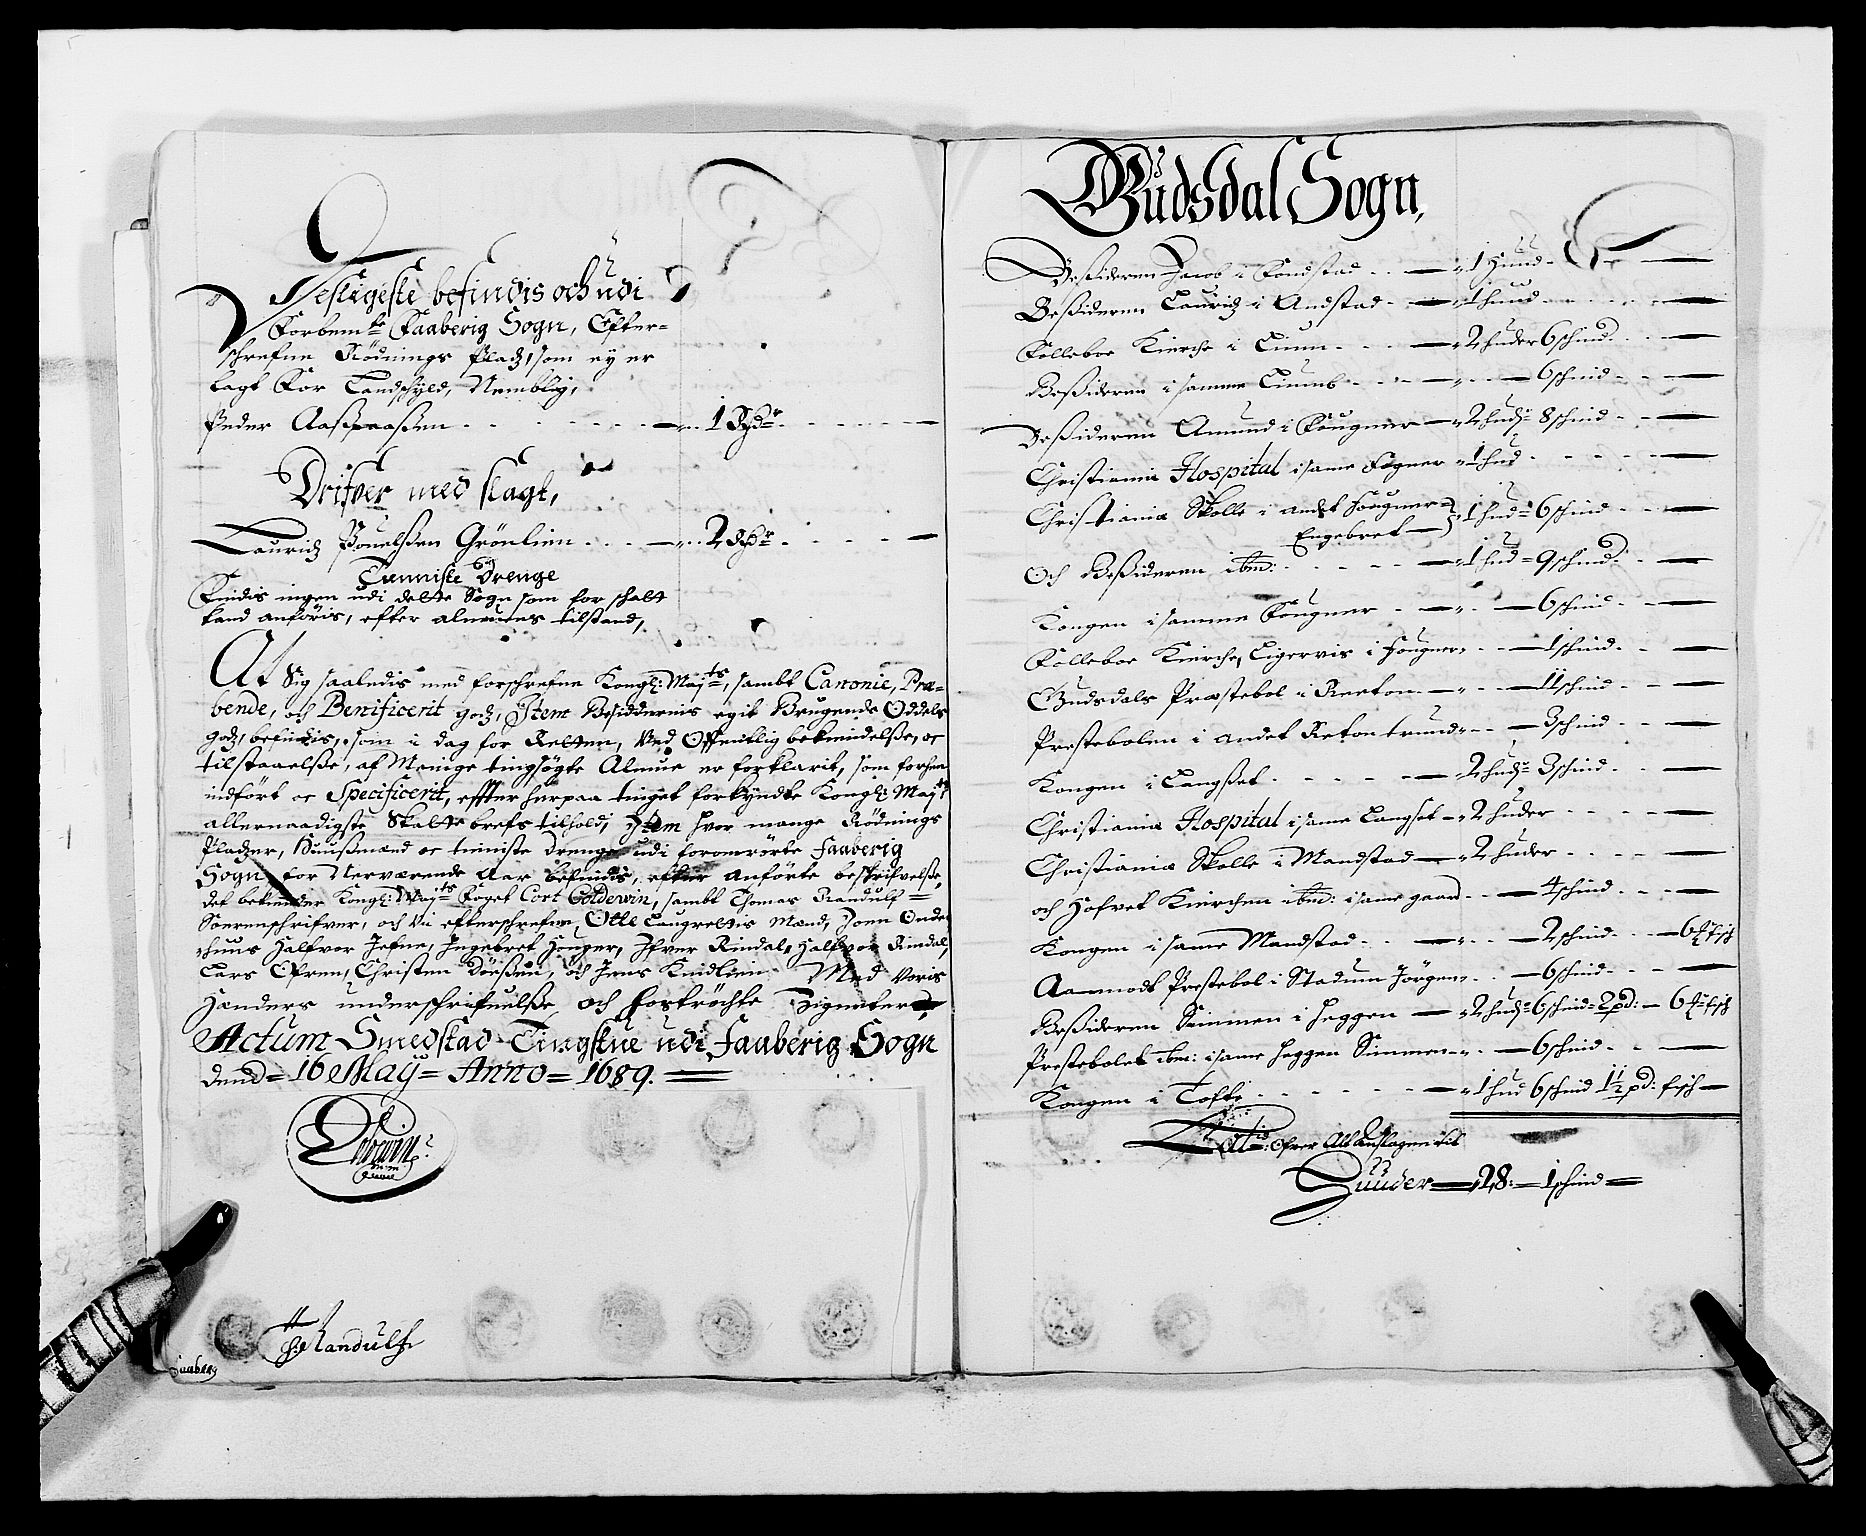 Desligeste befindis och udi
Forbemte Faaberig Sogn, Efter=
schrefne Rödnings Pladz, som ey er
lagt For Landschyld, Nemblig,
Peder Aaspaaßen 1 Rdr
Drifver med slagt,
Lauridz Pouelßen Grönlien 2 Rdr
Tienniste Drenge
Findis ingen udi dette Sogn som for schatt
kand anföris, efter almues tilstand,
At Sig saaledis med forschrefne Kongl: Mayts, sambt Canonie, Præ=
bende, och Benificerit godz, Item Besiddernis egit Brugende Oddels
godz, befindis, som i dag for Retten, Ved Offentlig bekiendelße, oc
tilstaaelße, af Menige tingsøgte Almue er forklarit, som forhen
indfört oc Specificerit, effter her paa tinget forkyndte Kongl: Mayts
allernaadigste Skatte brefs tilhold, Item hvor mange Rödnings
Pladzer, Huusmænd oc tieniste drenge udi foromrörte Faaberig
Sogn for Nerværende Aar befindis, efter anförte beskrifvelße,
det bekiender Kongl: Mayts Foget Cort Coldewin, sambt Thomas Randulf
Sorenschrifver, och Vii efterschrefne Otte Laugrettis Mænd, Joen Onde
huus Halfvor Jefne, Ingebret Honger, Ifver Rindal, Halfvor Rindal,
Lars Ofren, Christen Dörßen, och Jens Kindlien. Med Voris
Hænders underschrifvelße och hoströchte Zigneter
Actum Smedstad Tingstue udi Faaberig Sogn
dend = 16 May = Anno = 1689.
Coldewin
H: Randulf
Faaberg
Gudsdal Sogn,
Beßidderen Jacob i Fondstad 1 Huud
Beßidderen Lauridz i Andstad 1 huud
Folleboe Kierche i Lium 2 huder 6 schind
Beßidderen i samme Liumb 6 schind
Beßidderen Amund i Fougner 2 hudr 8 schind
Christiania Hospital i same Fogner 1 hud
Christiania Skolle i andet Fougner
Engebret 1 hud 6 schind
Och Beßidderen ibm: 1 hud = 9 schind
Kongen i samme Fougner 6 schind
Folleboe Kierche, Ligervis i Fougner 1 schind
Gudsdals Præstebol i Reeton 11 schind
Prestebolen i andet Reton trund 3 schind
Kongen i Langßet 2 hudr 3 schind
Christiania Hospital i same Langset 2 huder
Christiania Skolle i Mandstad 2 huder
och Hofvet Kierchen ibm: i same gaard 4 schind
Kongen i same Mandstad 2 schind 6 fisch
Aamodt Prestebol i Stadum Jörgen 6 schind
Beßidderen Simmen i Heggen 2 hudr 6 schind 2 pd: 6 fisch
Prestebolet ibm: i same Heggen Simmen 6 schind
Kongen i Tofte 1 hud 6 schind 1½ pd: fisch
Latus: Ofver Alt Anslagen til
Huuder 28: 1 schind